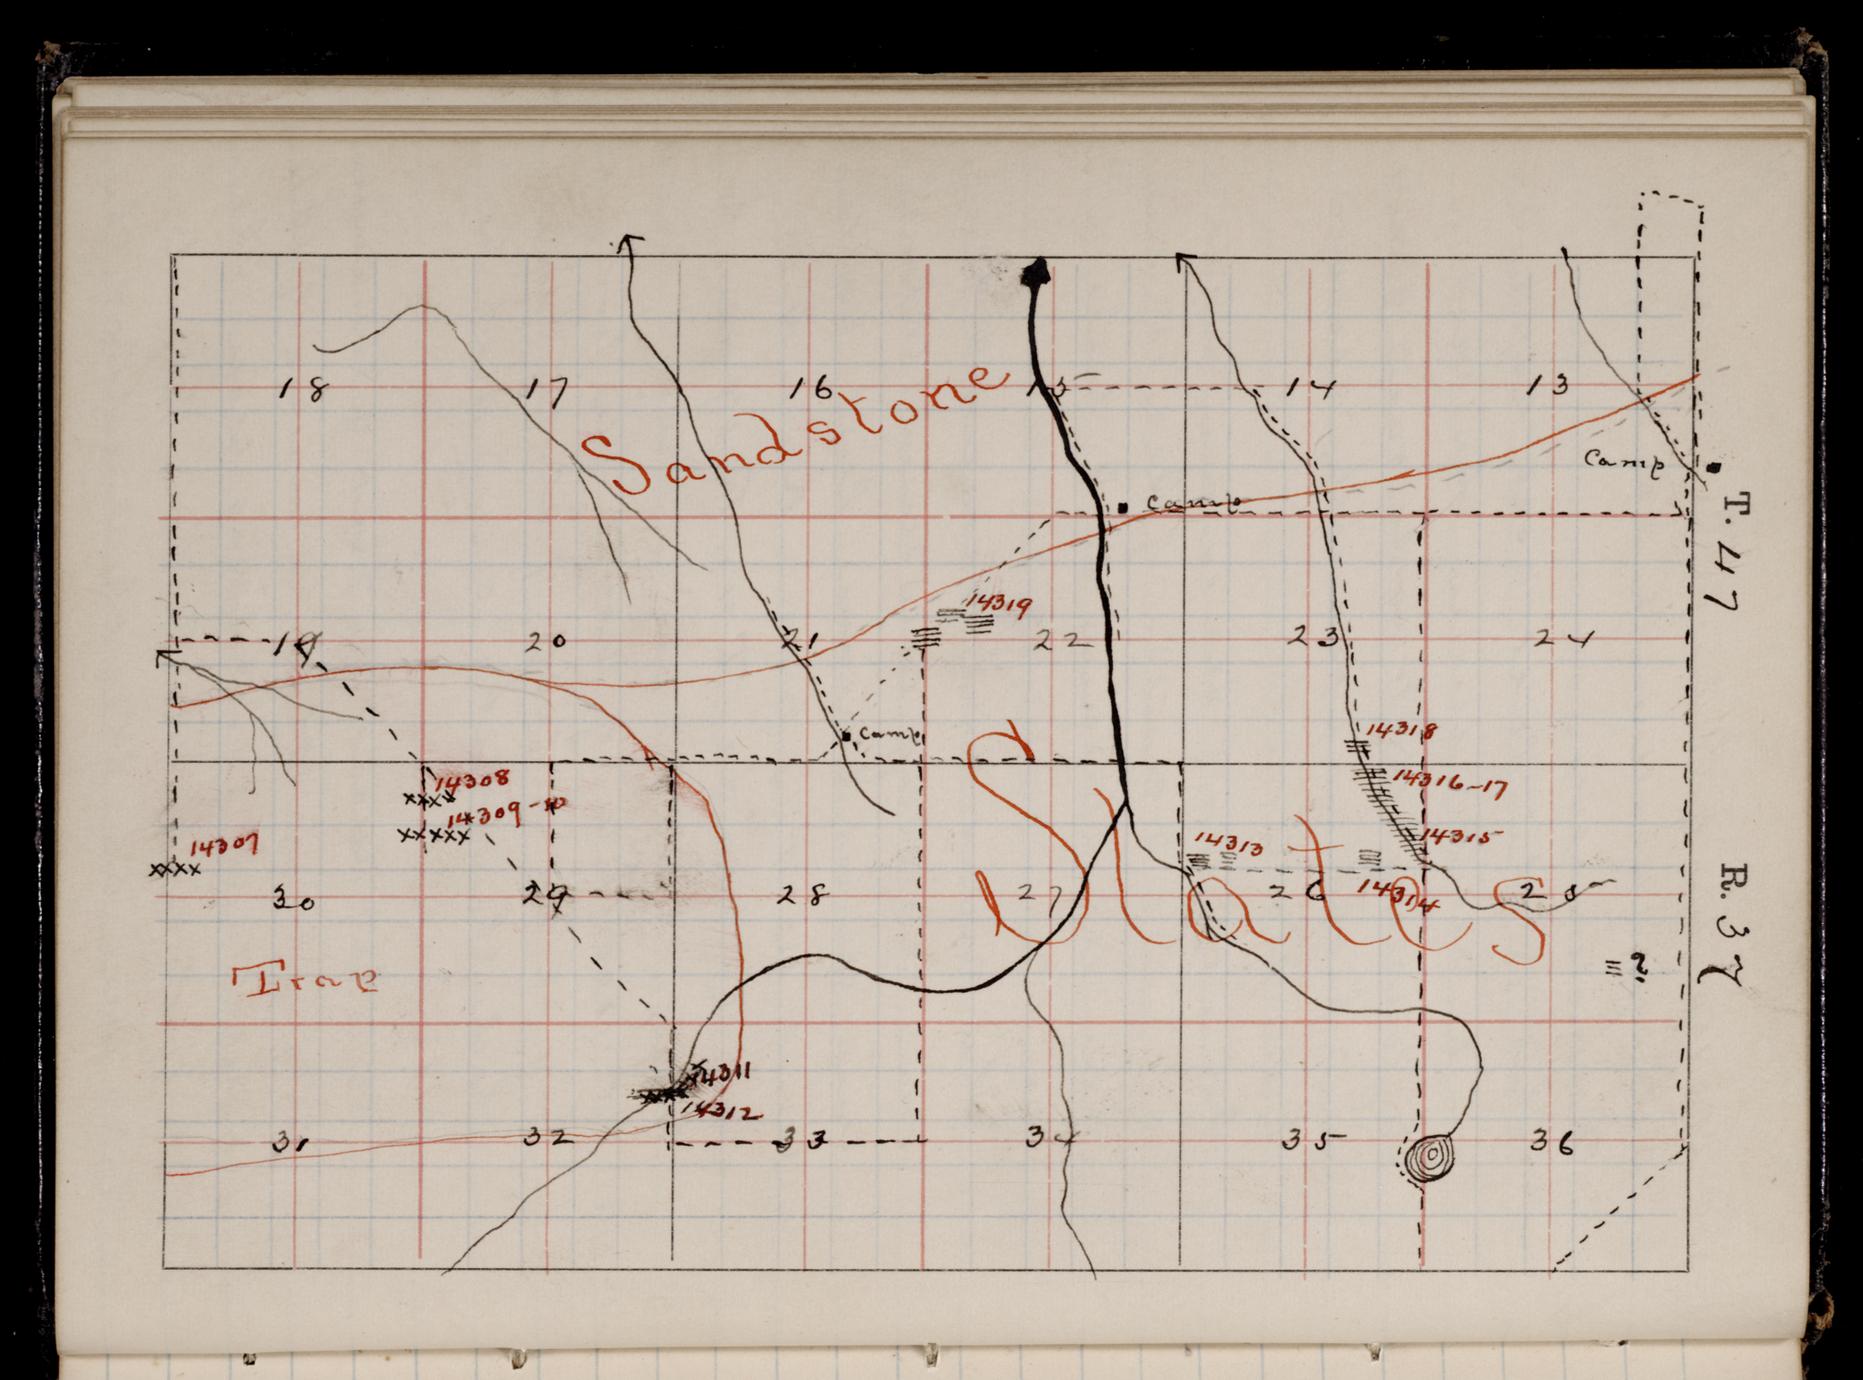 18 17 16 15 14 13
Sandstone
Camp
Camp
T. 47
14319
19 20 21 22 23 24
Camp
14318
14308
14316-17
14309-10
14307
14313
14315
30 29 28 27 26 25
14314
Slates
Trap
?
R. 37
14311
14312
31 32 33 34 35 36